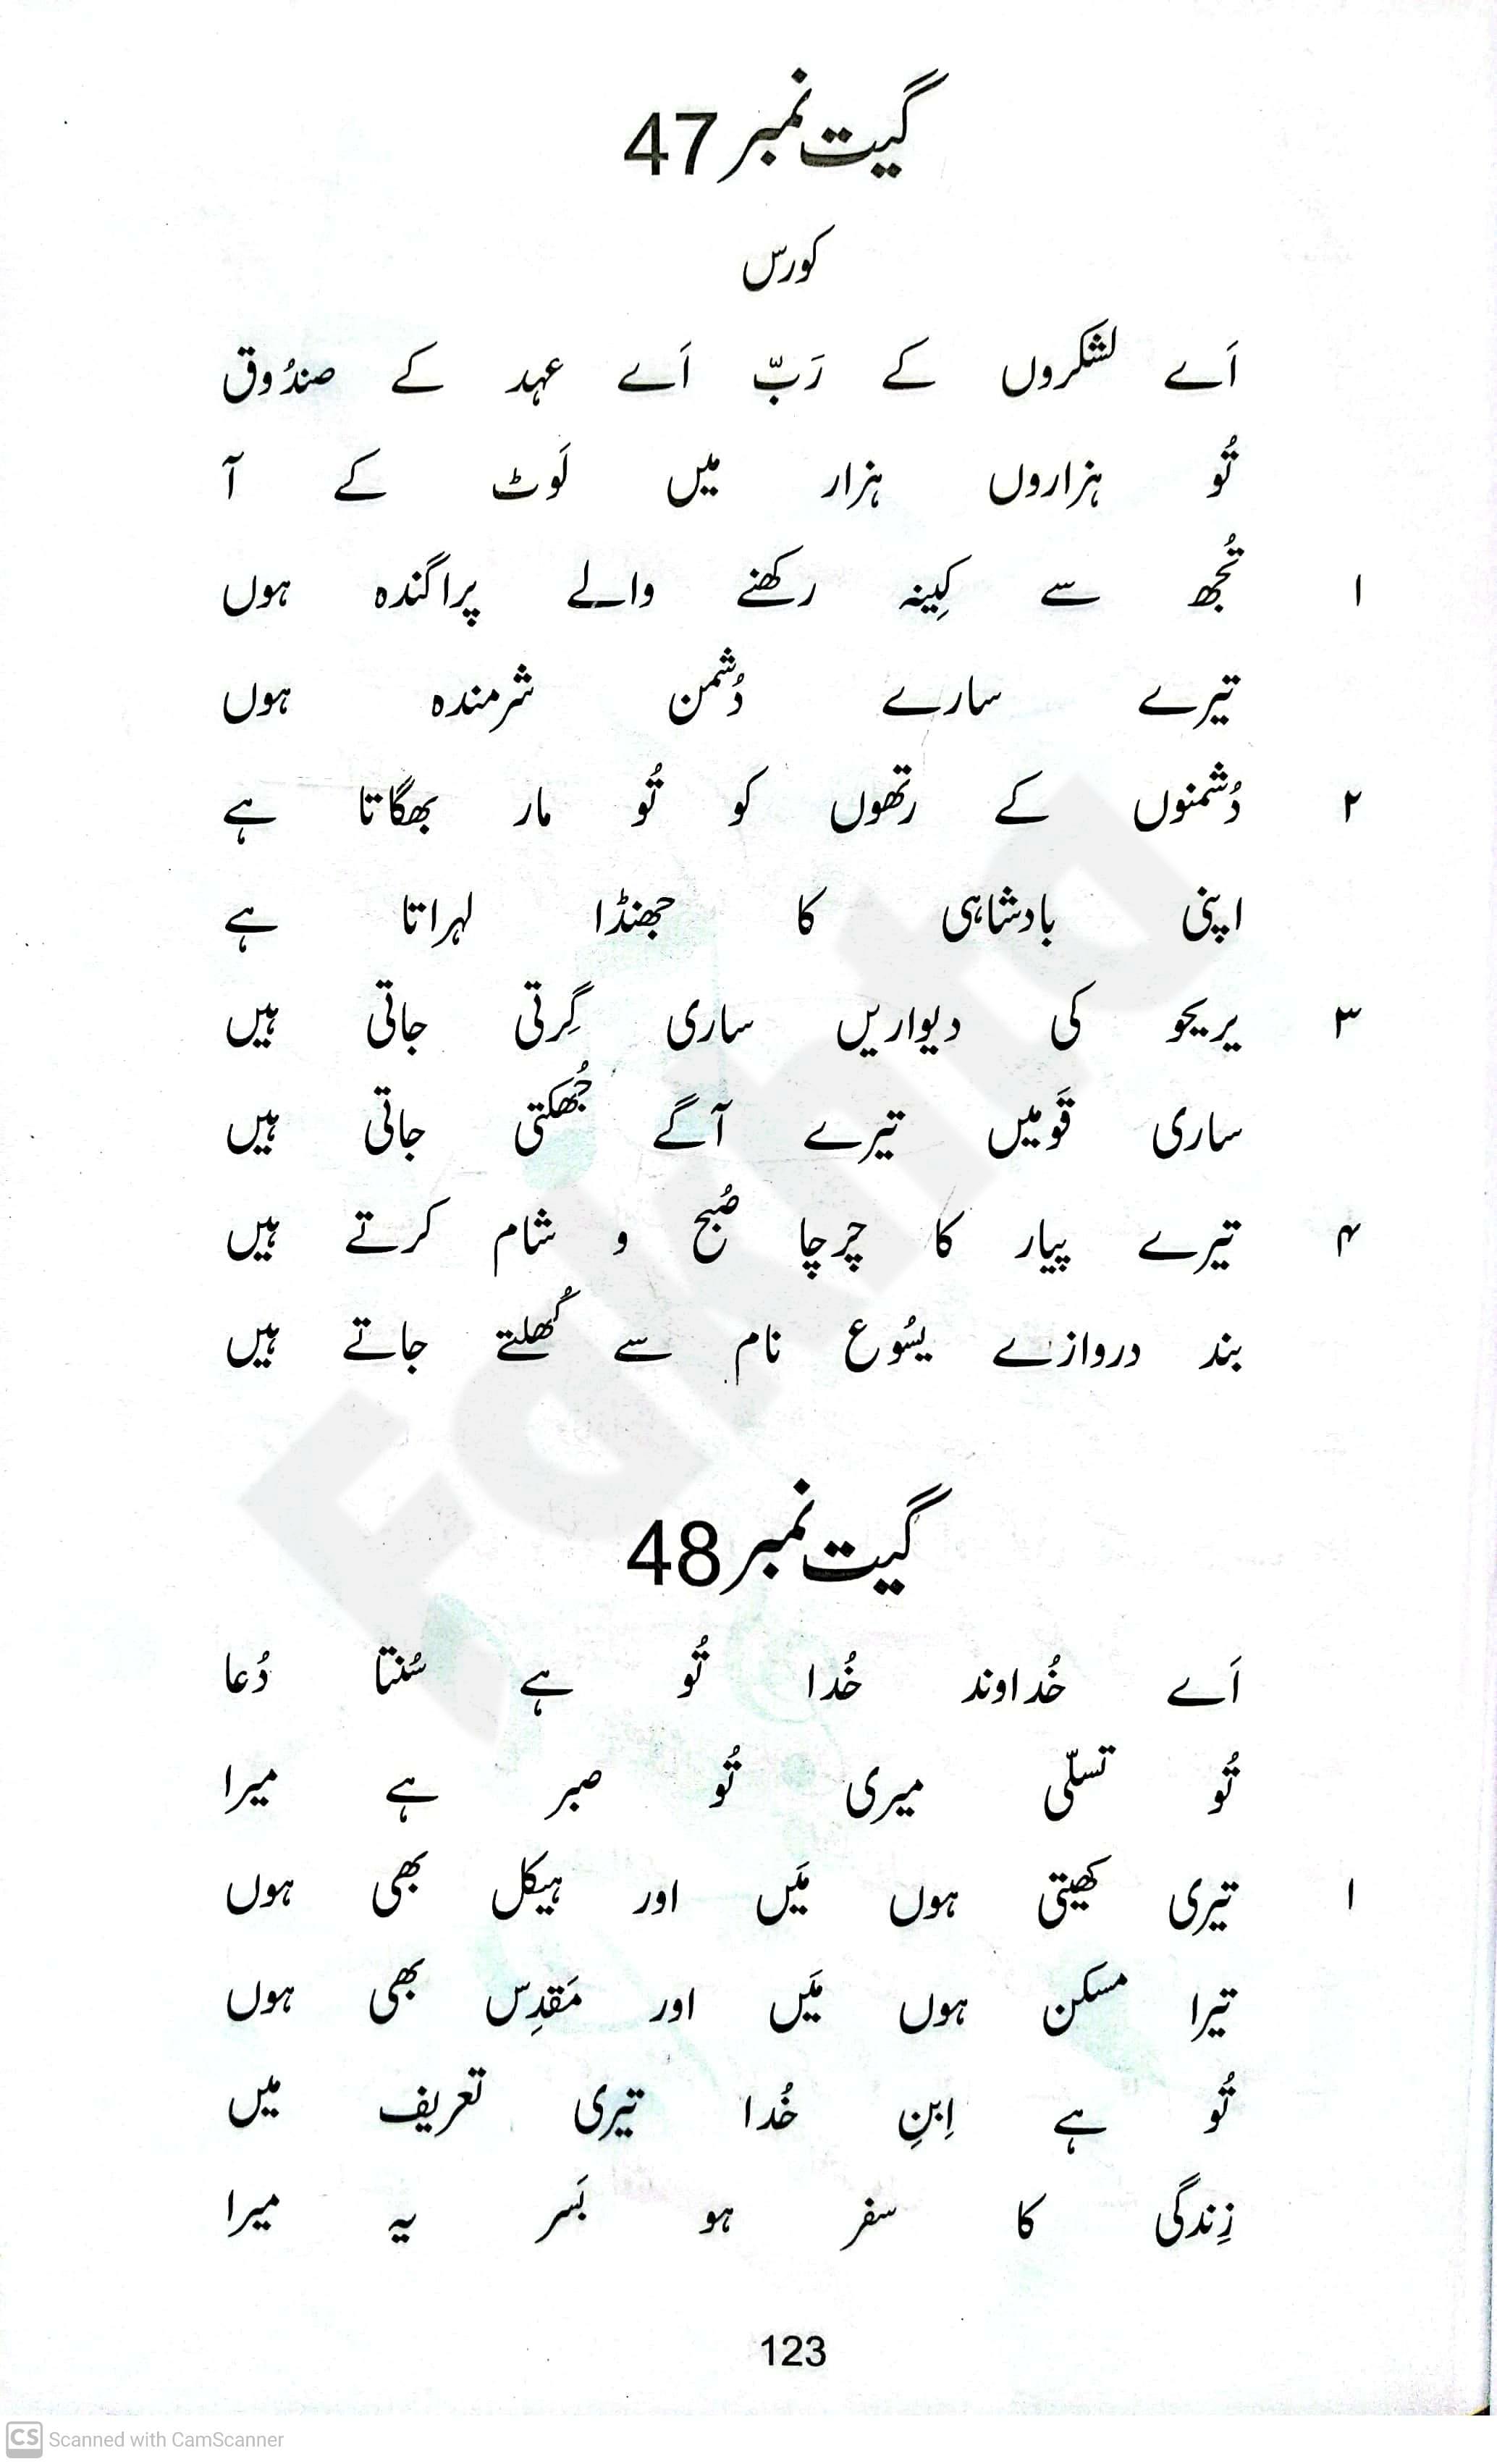 گیت نمبر 47
کورس
اَے لشکروں کے رَبّ اَے عہد کے صندُوق
تُو ہزاروں ہزار میں لَوٹ کے آ
۱ تُجھ سے کِینہ رکھنے والے پراگندہ ہوں
تیرے سارے دُشمن شرمندہ ہوں
۲ دُشمنوں کے رتھوں کو تُو مار بھگاتا ہے
اپنی بادشاہی کا جھنڈا لہراتا ہے
۳ یریحو کی دیواریں ساری گِرتی جاتی ہیں
ساری قَومیں تیرے آگے جُھکتی جاتی ہیں
۴ تیرے پیار کا چرچا صُبح و شام کرتے ہیں
بند دروازے یسُوع نام سے کُھلتے جاتے ہیں
گیت نمبر 48
اَے خُداوند خُدا تُو ہے سُنتا دُعا
تُو تسلّی میری تُو صبر ہے میرا
۱ تیری کھیتی ہوں مَیں اور ہیکل بھی ہوں
تیرا مسکن ہوں مَیں اور مَقدِس بھی ہوں
تُو ہے اِبنِ خُدا تیری تعریف میں
زِندگی کا سفر ہو بَسر یہ میرا
123
Fakhta
CS Scanned with CamScanner